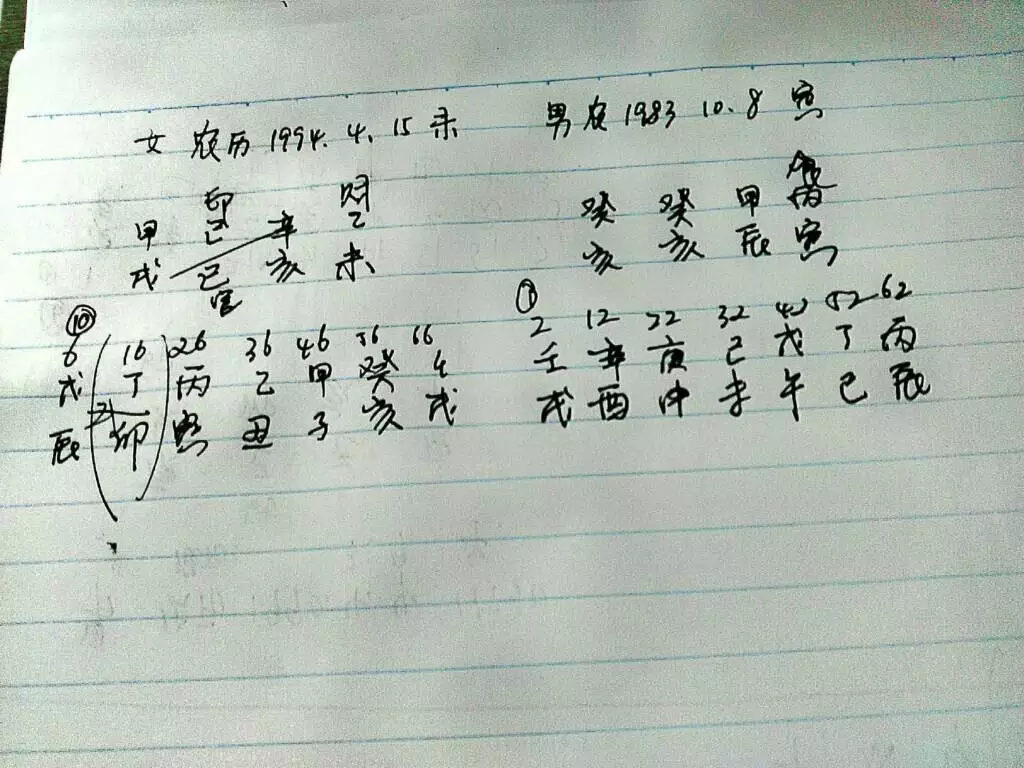 女 农历 1994. 4. 15 未 男 农 1983 10. 8 寅
印 财
甲 己 辛 乙 癸 癸 甲 丙
戌 巳 亥 未 亥 亥 辰 寅
官
⑩ ①
6 16 26 36 46 56 66 2 12 22 32 42 52 62
戊 丁 丙 乙 甲 癸 壬 辛 庚 己 戊 丁 丙
辰 卯 寅 丑 子 亥 戌 戌 酉 申 未 午 巳 辰